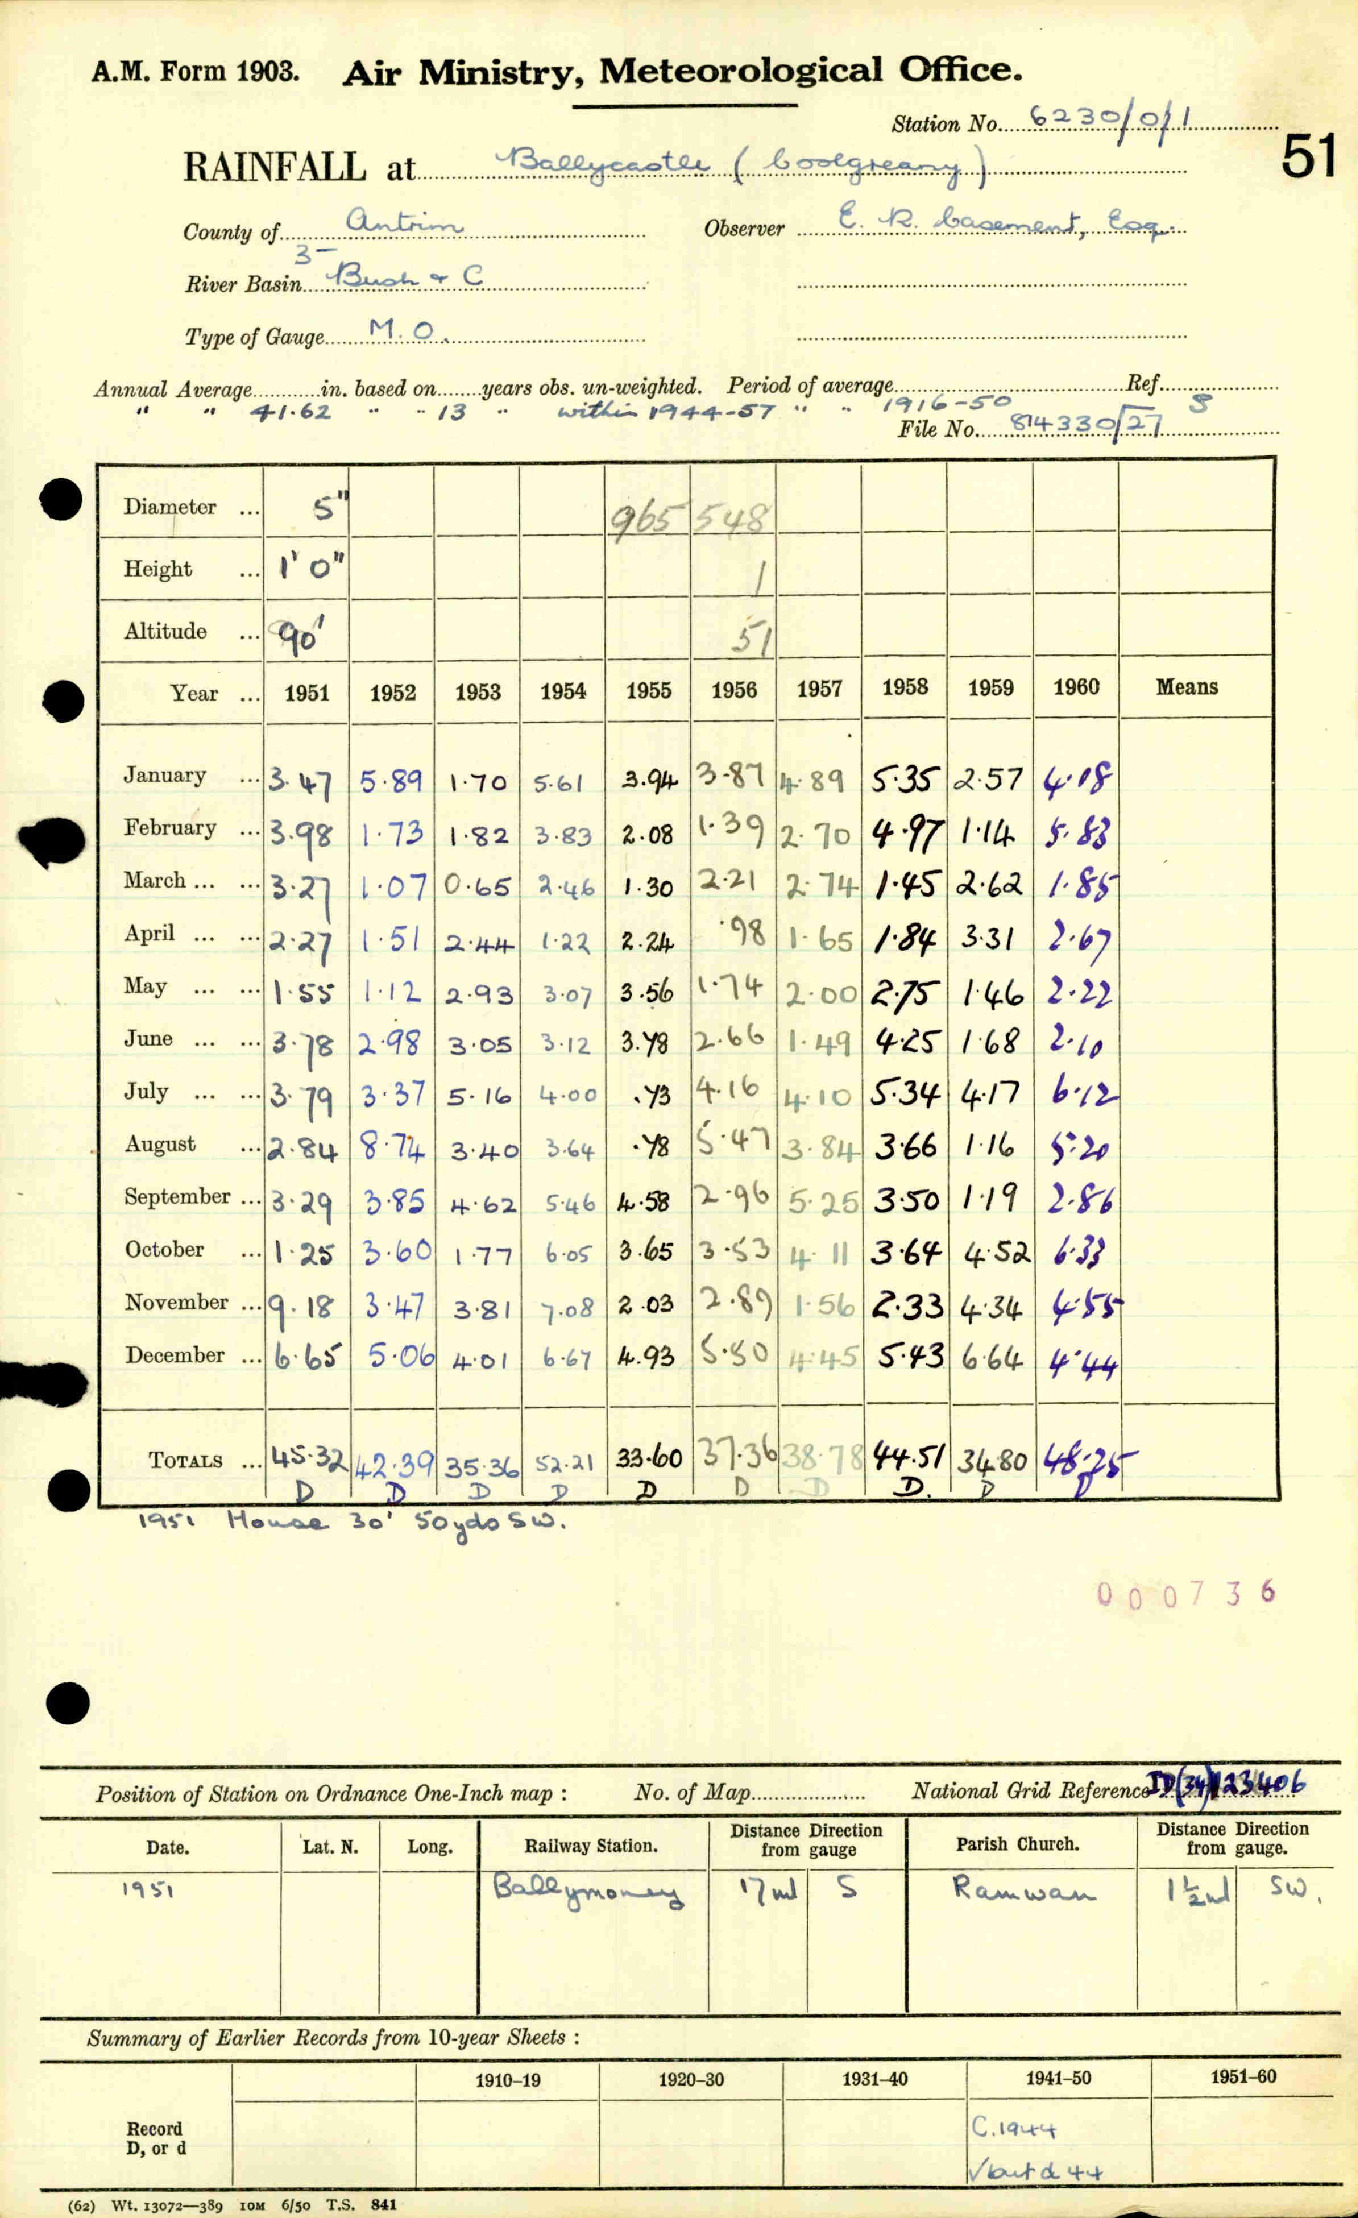 A.M. Form 1903. Air Ministry, Meteorological Office.
Station No. 6230/0/1
51
RAINFALL at Ballycastle (Coolgreany)
County of Antrim Observer E. R. Casement, Esq.
3-
River Basin Bush & C
Type of Gauge M.O.
Annual Average in. based on years obs. un-weighted. Period of average Ref.
" " 41.62 " " 13 " within 1944-57 " " 1916-50 S
File No. 814330/27
Diameter ... 5" 965 548
Height ... 1' 0" 1
Altitude ... 90' 51
Year ... 1951 1952 1953 1954 1955 1956 1957 1958 1959 1960 Means
January ... 3.47 5.89 1.70 5.61 3.94 3.87 4.89 5.35 2.57 4.18
February ... 3.98 1.73 1.82 3.83 2.08 1.39 2.70 4.97 1.14 5.83
March ... ... 3.27 1.07 0.65 2.46 1.30 2.21 2.74 1.45 2.62 1.85
April ... ... 2.27 1.51 2.44 1.22 2.24 .98 1.65 1.84 3.31 2.67
May ... ... 1.55 1.12 2.93 3.07 3.56 1.74 2.00 2.75 1.46 2.22
June ... ... 3.78 2.98 3.05 3.12 3.78 2.66 1.49 4.25 1.68 2.10
July ... ... 3.79 3.37 5.16 4.00 .73 4.16 4.10 5.34 4.17 6.12
August ... 2.84 8.74 3.40 3.64 .78 5.47 3.84 3.66 1.16 5.20
September ... 3.29 3.85 4.62 5.46 4.58 2.96 5.25 3.50 1.19 2.86
October ... 1.25 3.60 1.77 6.05 3.65 3.53 4.11 3.64 4.52 6.33
November ... 9.18 3.47 3.81 7.08 2.03 2.89 1.56 2.33 4.34 4.55
December ... 6.65 5.06 4.01 6.67 4.93 5.50 4.45 5.43 6.64 4.44
TOTALS ... 45.32 42.39 35.36 52.21 33.60 37.36 38.78 44.51 34.80 48.25
D D D D D D D D. D D
1951 House 30' 50yds SW.
000736
Position of Station on Ordnance One-Inch map : No. of Map National Grid Reference ID(34)123406
Date. Lat. N. Long. Railway Station. Distance Direction from gauge Parish Church. Distance Direction from gauge.
1951 Ballymoney 17ml S Ramwan 1½ml SW.
Summary of Earlier Records from 10-year Sheets :
1910–19 1920–30 1931–40 1941–50 1951–60
Record D, or d
C.1944
√ but d 44
(62) Wt. 13072—389 10M 6/50 T.S. 841